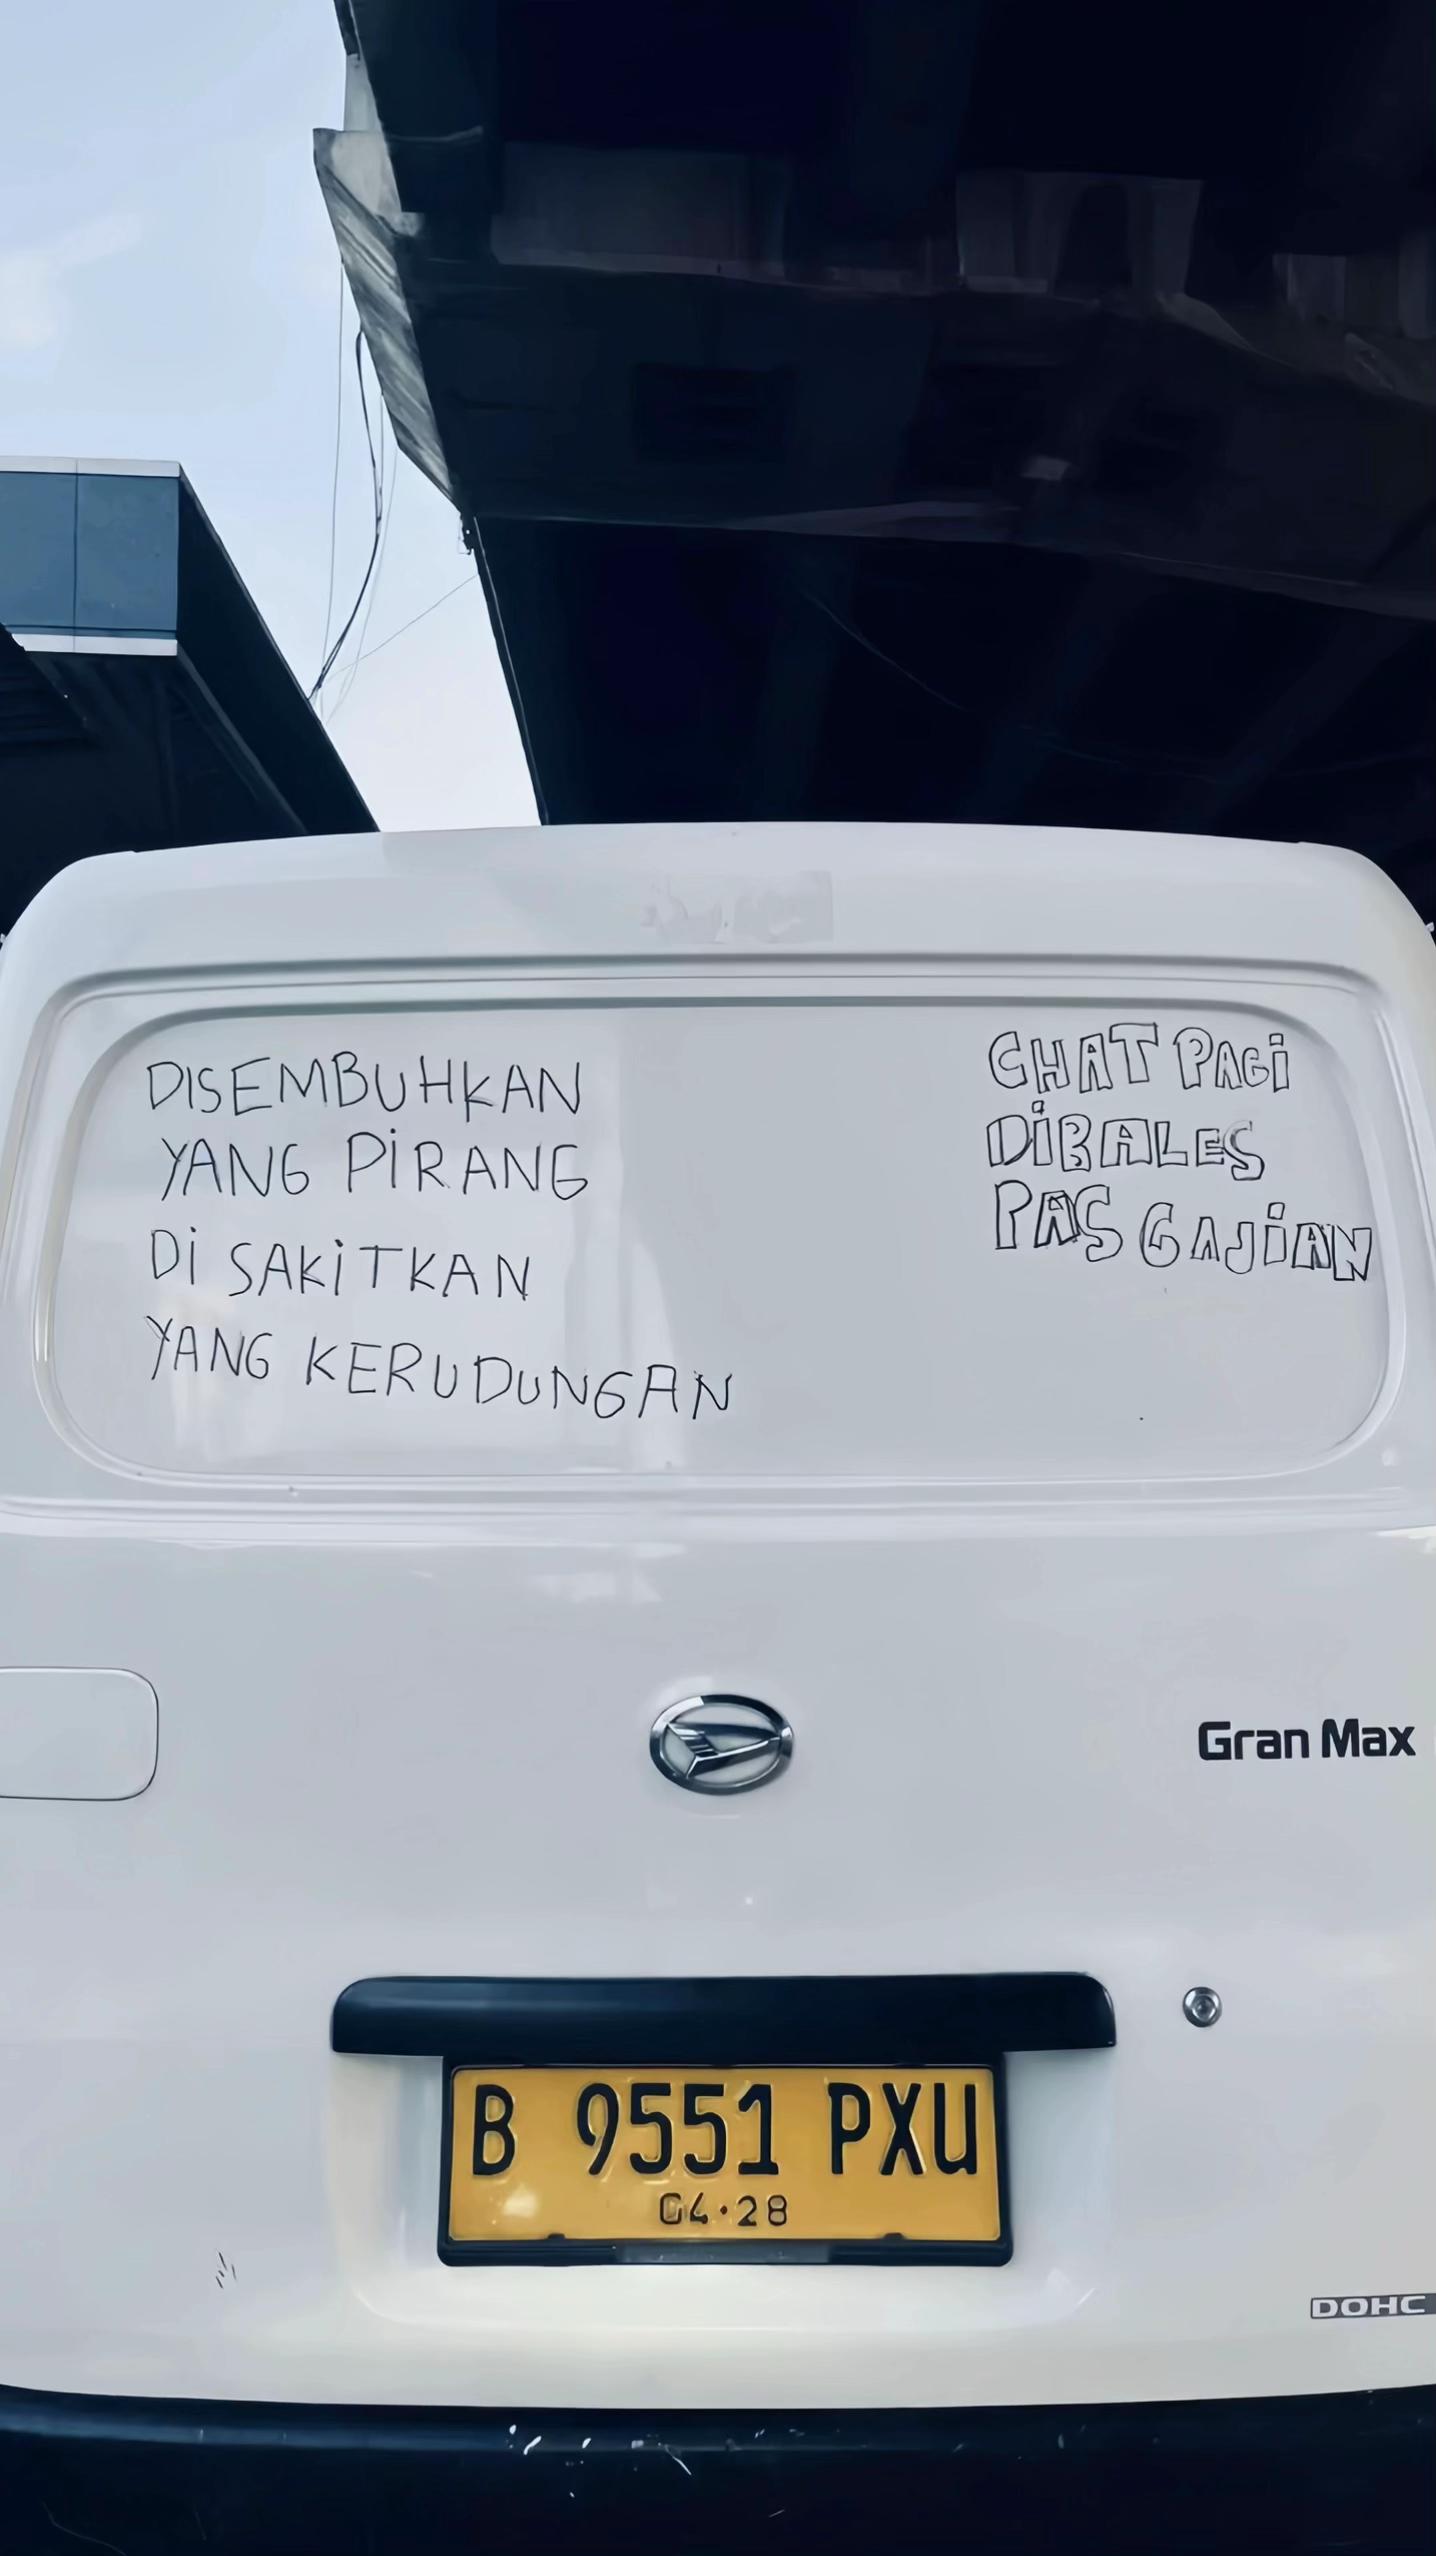 DISEMBUHKAN
YANG PIRANG
DI SAKITKAN
YANG KERUDUNGAN
CHAT PAGI
DIBALES
PAS GAJIAN
Gran Max
B 9551 PXU
04·28
DOHC